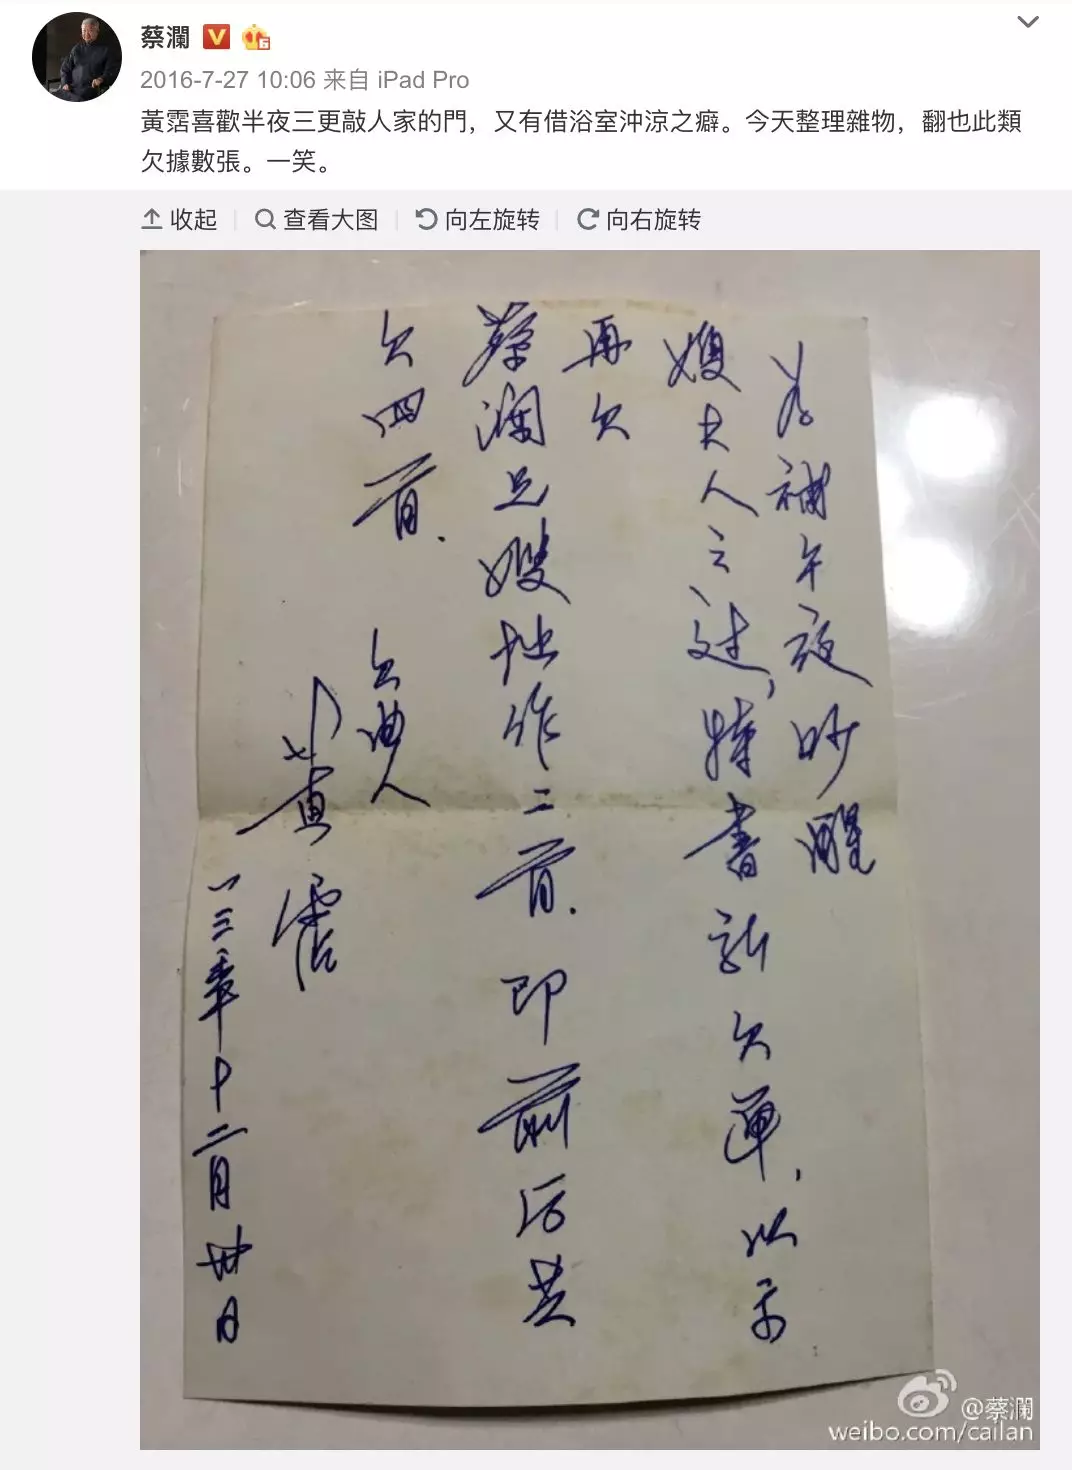 蔡瀾
2016-7-27 10:06 来自 iPad Pro
黃霑喜歡半夜三更敲人家的門，又有借浴室沖涼之癖。今天整理雜物，翻也此類
欠據數張。一笑。
收起 查看大图 向左旋转 向右旋转
為補午夜吵醒
嫂夫人之过，特書新欠單，以示
再欠
蔡瀾兄嫂拙作二首．即前后共
欠四首．
欠曲人
黃霑
一三年十二月卅日
@蔡瀾
weibo.com/cailan